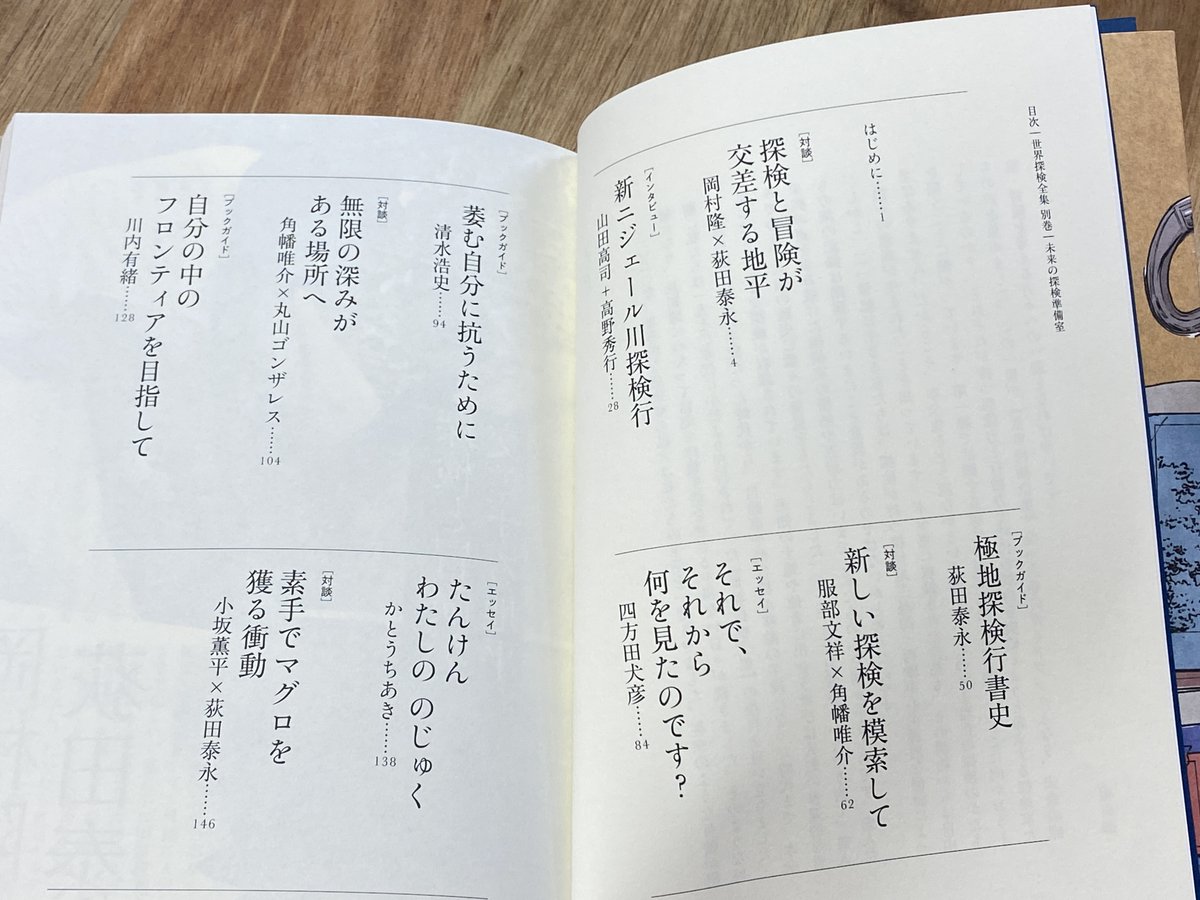 目次｜世界探検全集 別巻｜未来の探検準備室
はじめに……1
［対談］
探検と冒険が
交差する地平
岡村隆×荻田泰永……4
［インタビュー］
新ニジェール川探検行
山田高司＋高野秀行……28
［ブックガイド］
極地探検行書史
荻田泰永……50
［対談］
新しい探検を模索して
服部文祥×角幡唯介……62
［エッセイ］
それで、
それから
何を見たのです？
四方田犬彦……84
［ブックガイド］
萎む自分に抗うために
清水浩史……94
［対談］
無限の深みが
ある場所へ
角幡唯介×丸山ゴンザレス……104
［ブックガイド］
自分の中の
フロンティアを目指して
川内有緒……128
［エッセイ］
たんけん
わたしの のじゅく
かとうちあき……138
［対談］
素手でマグロを
獲る衝動
小坂薫平×荻田泰永……146